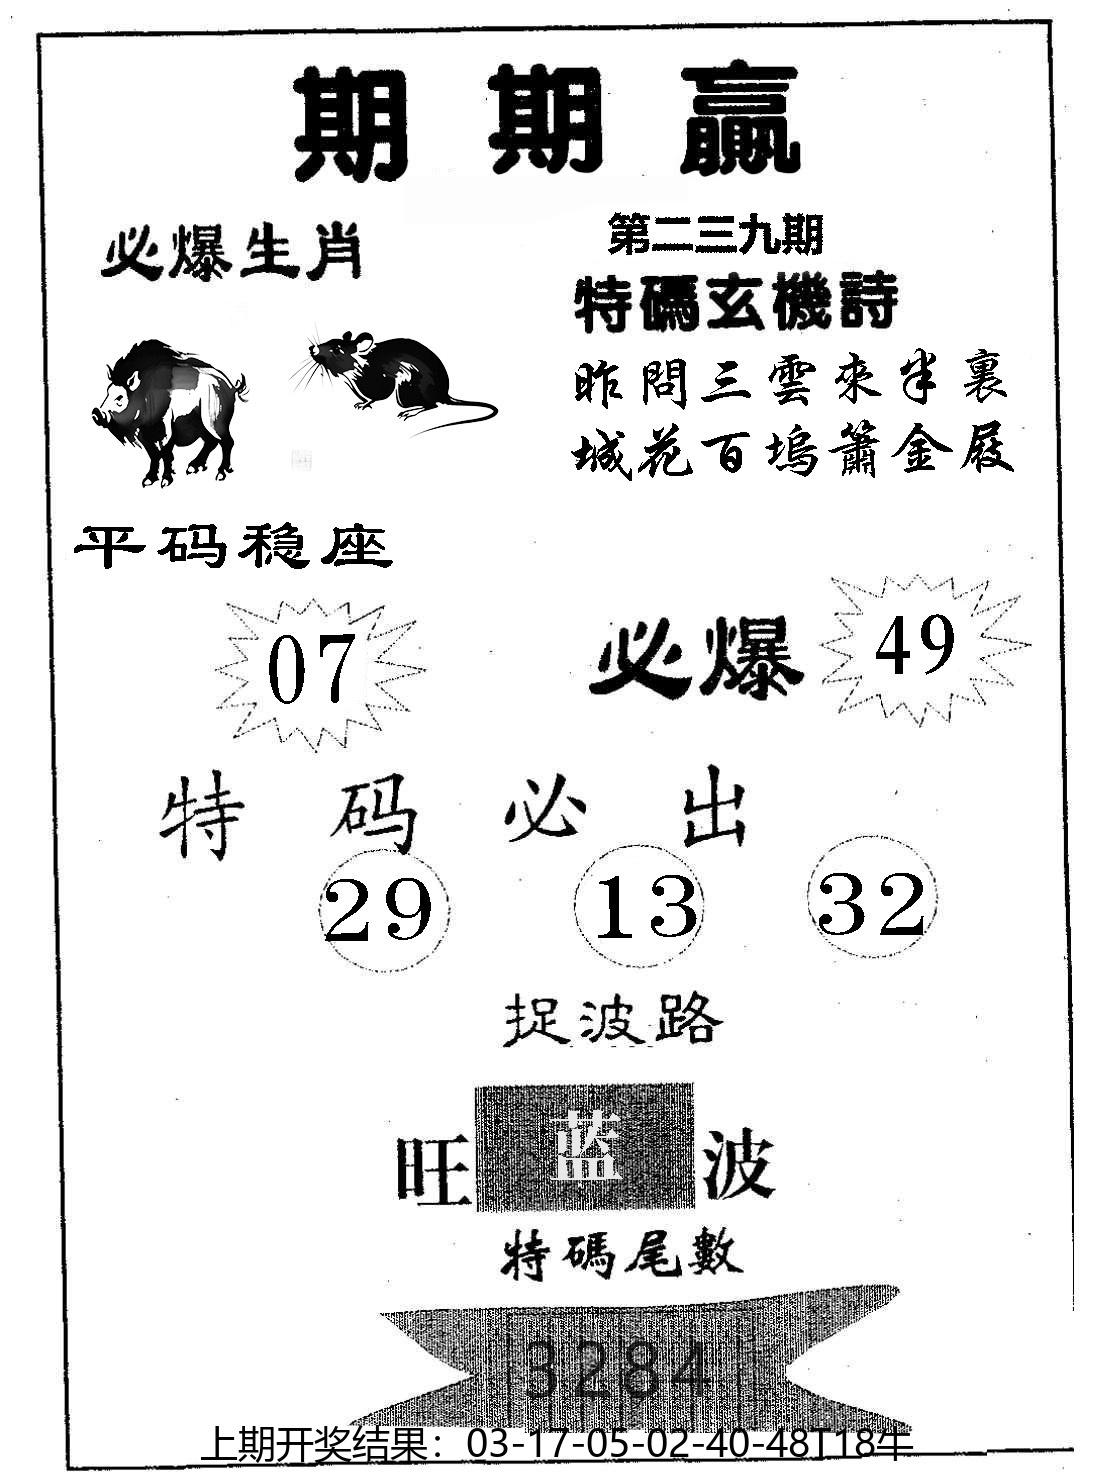 期期贏
必爆生肖
第二三九期
特碼玄機詩
昨問三雲來半裏
城花百塢簫金屐
平码稳座
07
必爆
49
特码必出
29 13 32
捉波路
旺蓝波
特碼尾數
3284
上期开奖结果：03-17-05-02-40-48T18牛